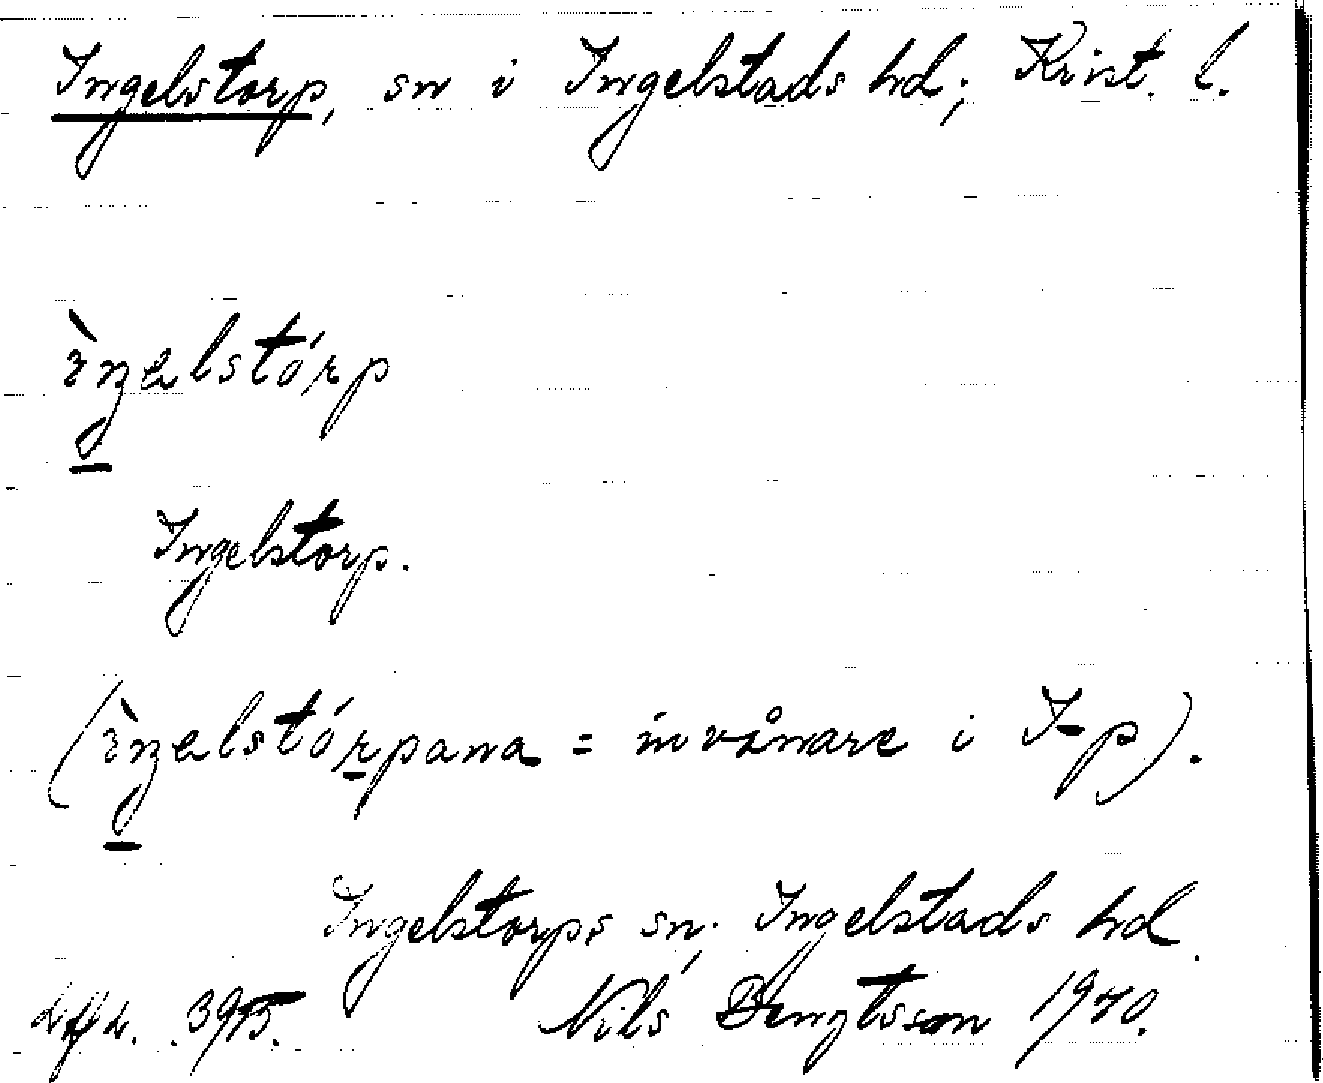 Ingelstorp, sn i Ingelstads hd; Krist. l.
ìŋəlstórp
Ingelstorp.
(ìŋəlstórpana = invånare i I-p).
Ingelstorps sn; Ingelstads hd.
3975. Nils Bengtsson 1940.